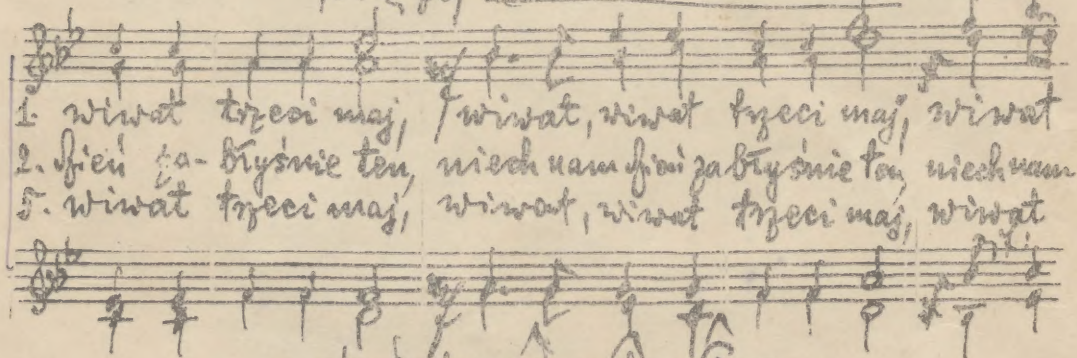 1. wiwat trzeci maj, wiwat, wiwat trzeci maj, wiwat
2. dzień za-błyśnie ten, niech nam dzień zabłyśnie ten, niech nam
5. wiwat trzeci maj, wiwat, wiwat trzeci maj, wiwat